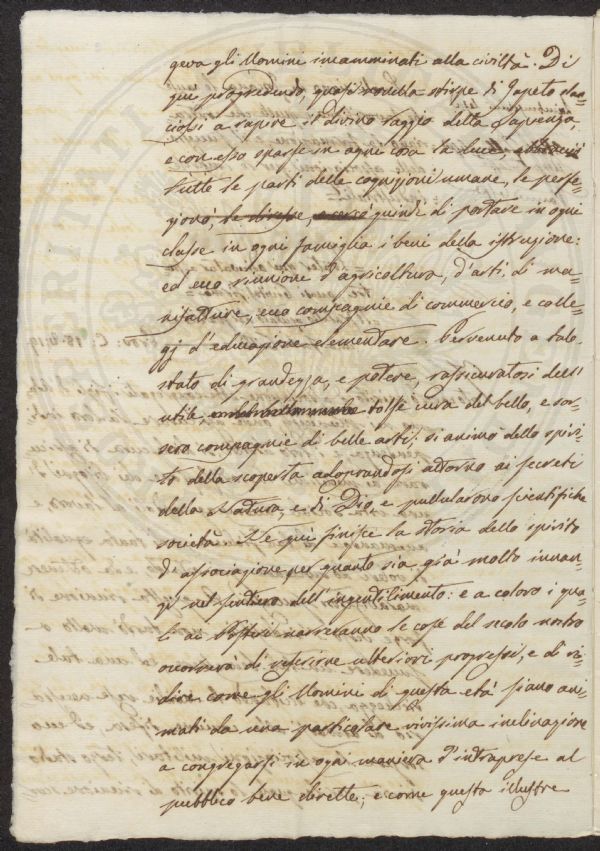 geva gli Uomini incamminati alla civiltà. Di
qui progredendo, quasi novella stirpe di Japeto slan-
ciossi a rapire il divino raggio della Sapienza,
e con esso sparse in ogni cosa la luce,
tutte le parti delle cognizioni umane, le perfe-
zionò, quindi di portare in ogni
classe in ogni famiglia i beni della istruzione:
ed ecco riunioni d'agricoltura, d'arti, di ma-
nifatture, ecco compagnie di commercio, e colle-
gj d'educazione elementare. Pervenuto a tale
stato di grandezza, e potere, rassicuratosi dell'
utile tolse cura del bello, e sor-
sero compagnie di belle arti; si animò dello spiri-
to della scoperta adoprandosi attorno ai secreti
della Natura, e di Dio, e pullularono scientifiche
società. Nè qui finisce la storia dello spirito
d'associazione per quanto sia già molto innan-
zi nel sentiero dell'ingentilimento: e a coloro i qua-
li ai Posteri narreranno le cose del secolo nostro
occorrerà di riferirne ulteriori progressi, e di ri-
dire come gli Uomini di questa età siano ani-
mati da una particolare vivissima inclinazione
a congregarsi in ogni maniera d'intraprese al
pubblico bene dirette; e come questa illustre